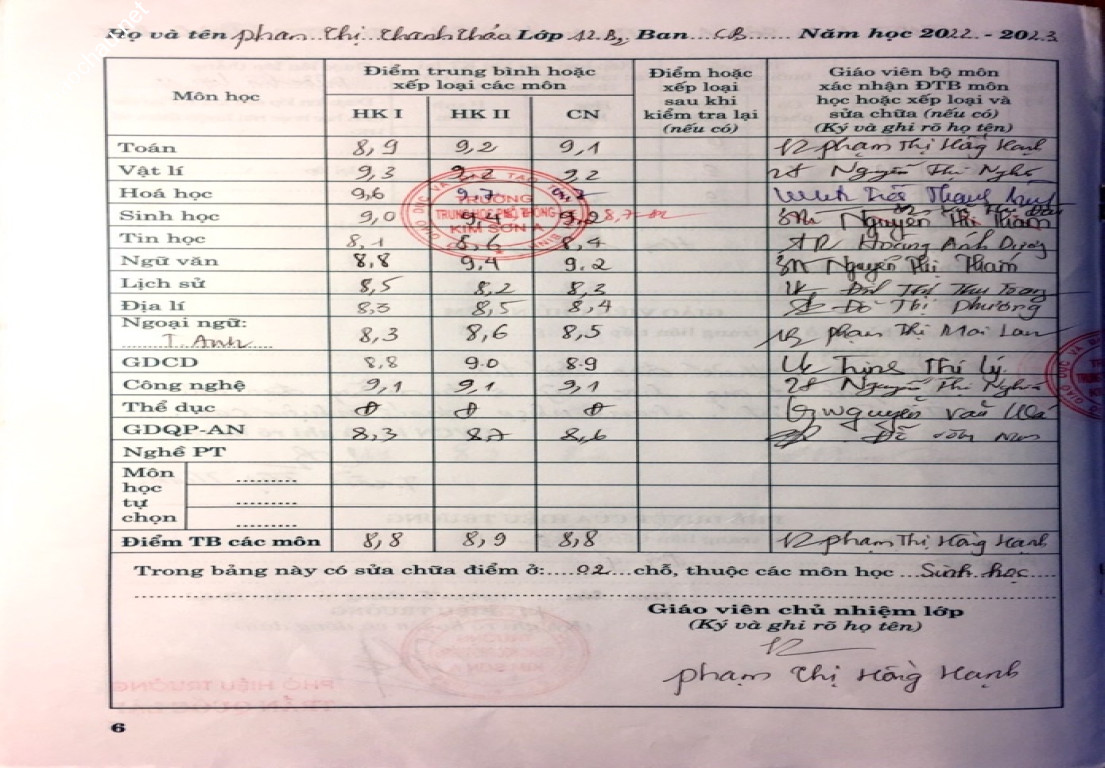 Họ và tên Phạm Thị Thanh Thảo Lớp 12B2 Ban CB Năm học 2022 - 2023
Môn học
Điểm trung bình hoặc
xếp loại các môn
HK I HK II CN
Điểm hoặc
xếp loại
sau khi
kiểm tra lại
(nếu có)
Giáo viên bộ môn
xác nhận ĐTB môn
học hoặc xếp loại và
sửa chữa (nếu có)
(Ký và ghi rõ họ tên)
Toán 8,9 9,2 9,1 Phạm Thị Hồng Hạnh
Vật lí 9,3 9,2 9,2 Nguyễn Thị
Hoá học 9,6 9,7
Sinh học 9,0 9,4 9,2 Nguyễn Thị
Tin học 8,1 8,6 8,4 Hoàng Ánh Dương
Ngữ văn 8,8 9,4 9.2 Nguyễn Thị Thắm
Lịch sử 8,5 8,2 8,3
Địa lí 8,3 8,5 8,4 Đỗ Thị Phương
Ngoại ngữ:
T. Anh 8,3 8,6 8,5 Phạm Thị Mai Lan
GDCD 8,8 9.0 8.9 Thị Lý
Công nghệ 9,1 9,1 9,1 Nguyễn Thị
Thể dục Đ Đ Đ Nguyễn Văn
GDQP-AN 8,3 8,7 8,6 Đỗ
Nghề PT
Môn
học
tự
chọn
Điểm TB các môn 8,8 8,9 8,8 Phạm Thị Hồng Hạnh
Trong bảng này có sửa chữa điểm ở: 02 chỗ, thuộc các môn học Sinh học
Giáo viên chủ nhiệm lớp
(Ký và ghi rõ họ tên)
Phạm Thị Hồng Hạnh
TRƯỜNG
TRUNG HỌC PHỔ THÔNG
KIM SƠN A
6